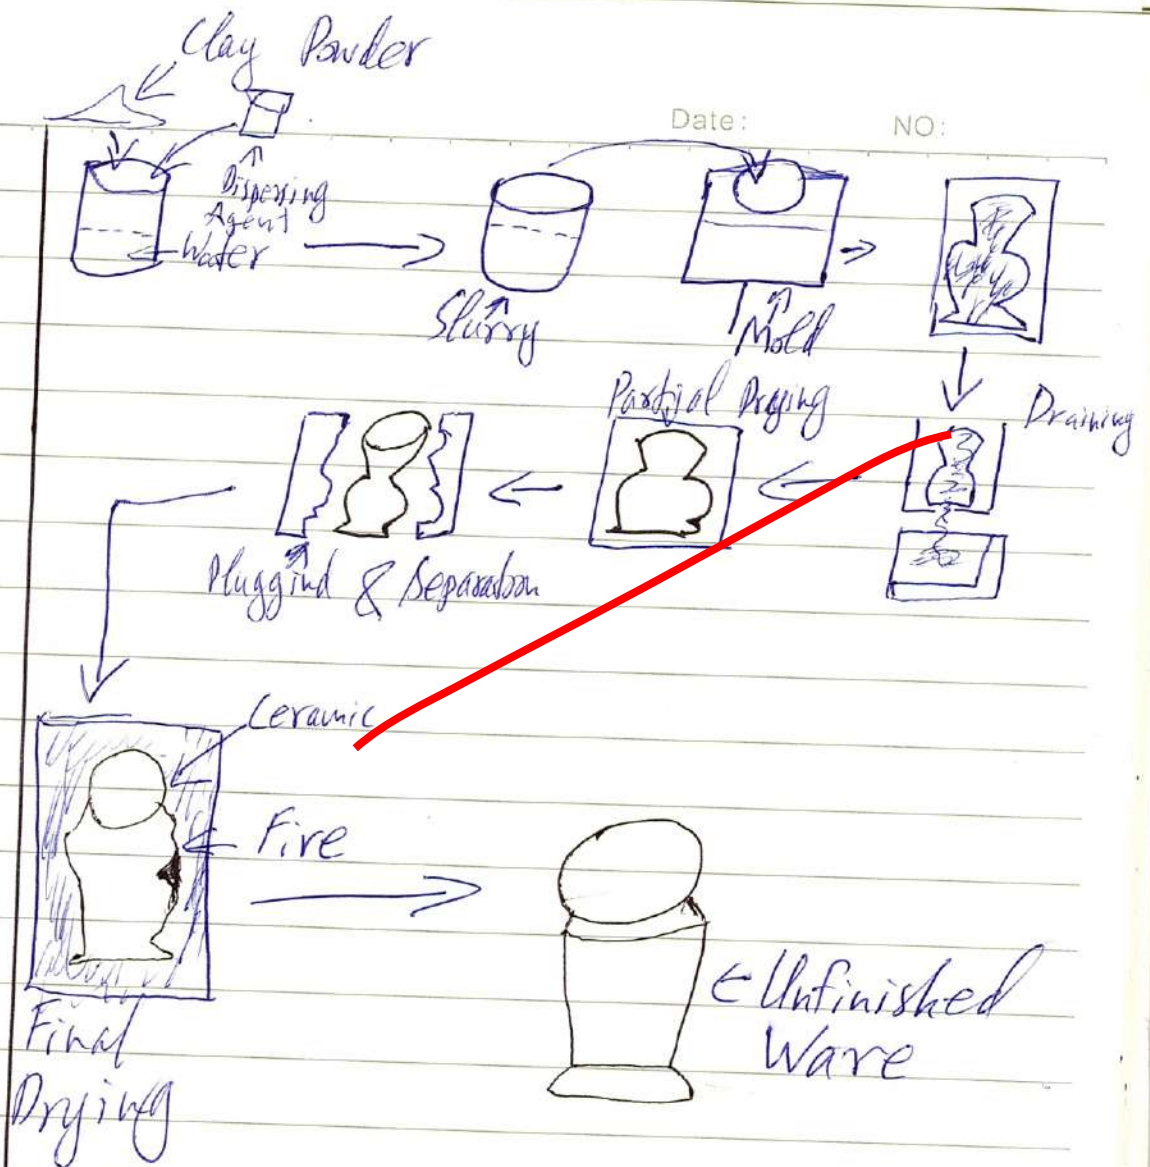 Clay Powder
Date:
NO:
Dispersing
Agent
Water
Slurry
Mold
Partial Drying
Draining
Pluggind & Separation
Ceramic
Fire
Final
Drying
Unfinished
Ware